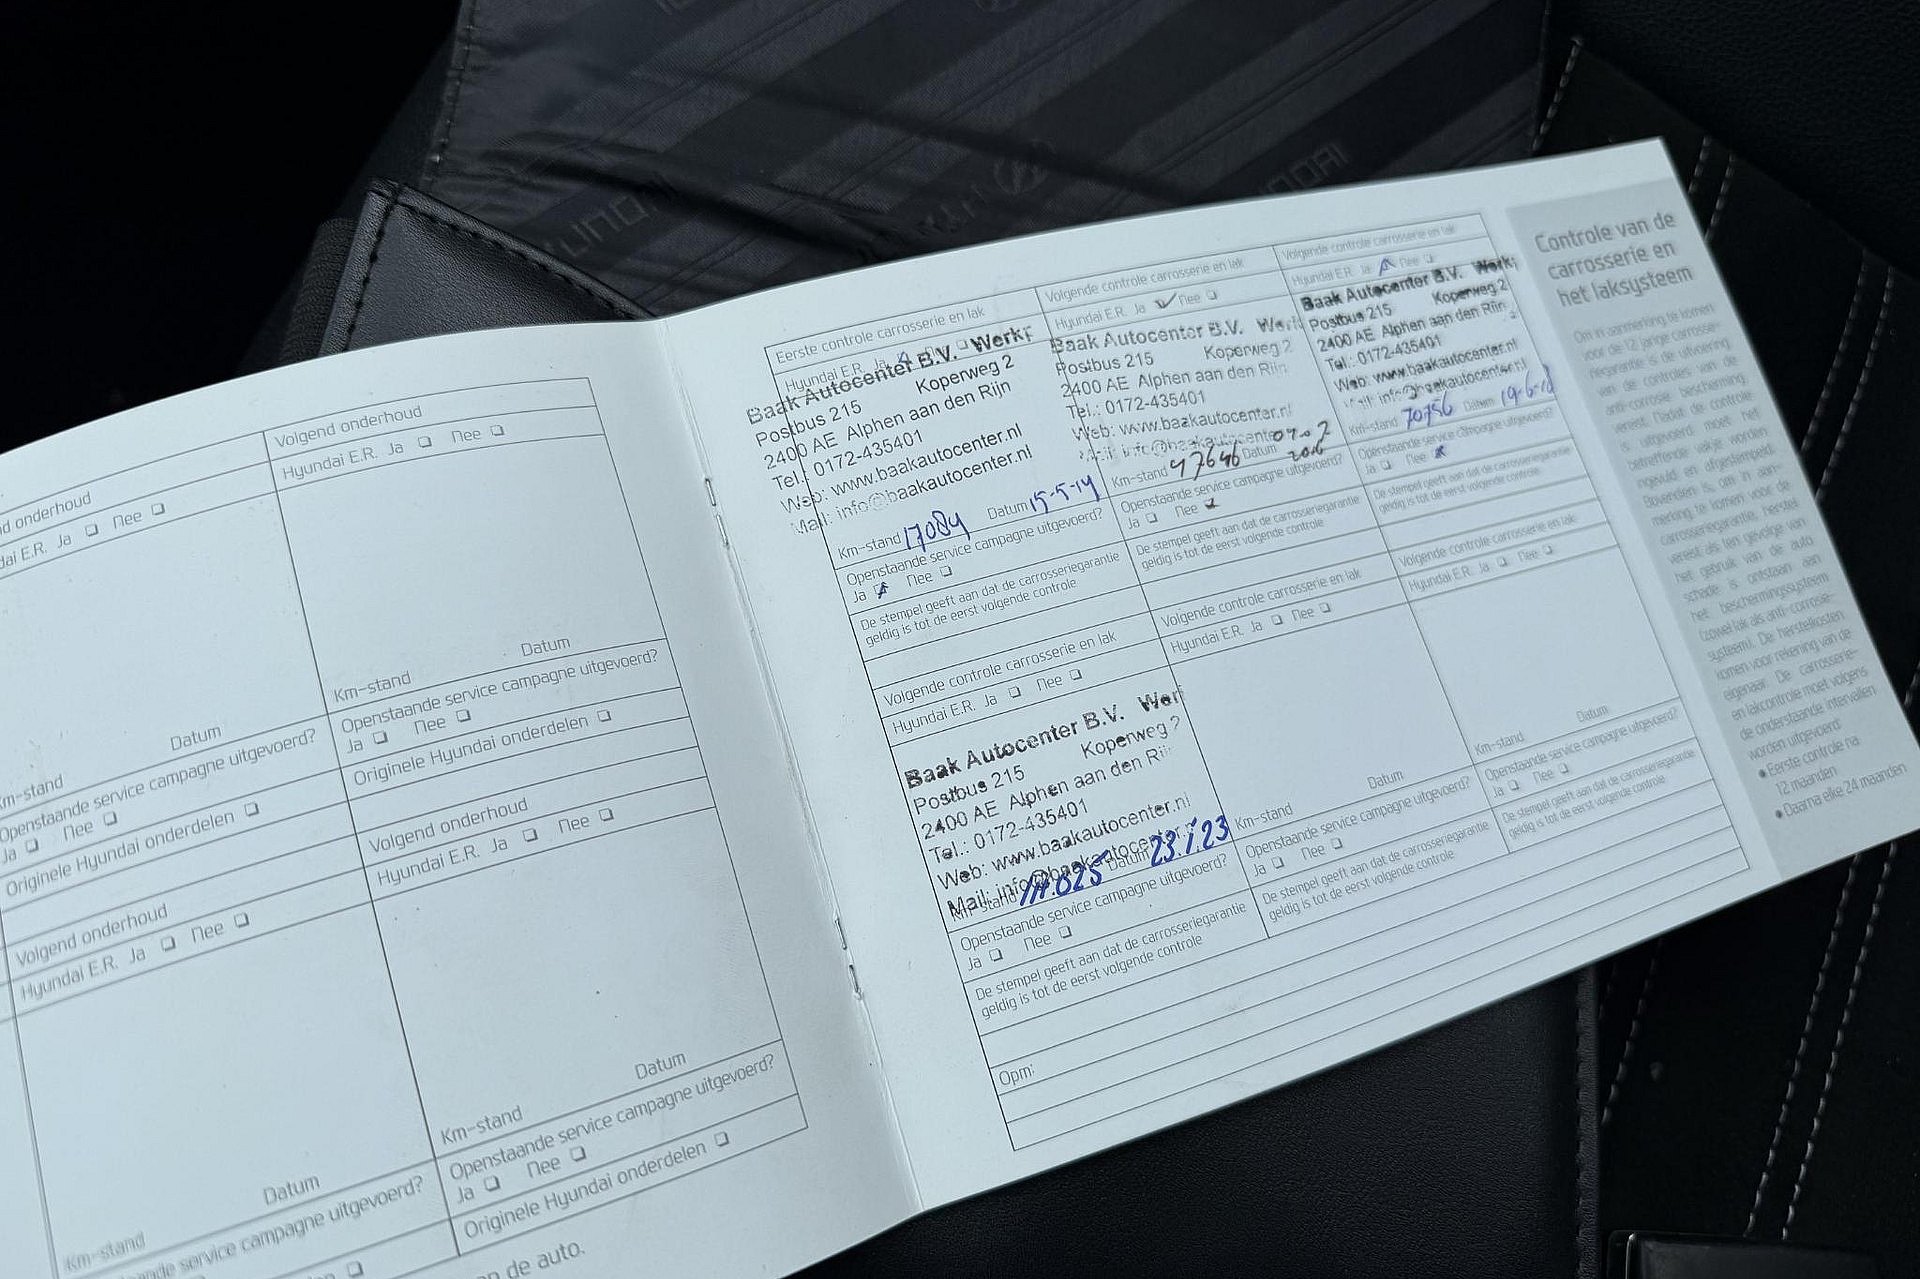 Volgend onderhoud
Hyundai E.R. Ja ❏ Nee ❏
d onderhoud
dai E.R. Ja ❏ Nee ❏
Datum
Km-stand
Openstaande service campagne uitgevoerd?
Ja ❏ Nee ❏
Originele Hyundai onderdelen ❏
Datum
Km-stand
Openstaande service campagne uitgevoerd?
Ja ❏ Nee ❏
Originele Hyundai onderdelen ❏
Volgend onderhoud
Hyundai E.R. Ja ❏ Nee ❏
Volgend onderhoud
Hyundai E.R. Ja ❏ Nee ❏
Datum
Km-stand
Openstaande service campagne uitgevoerd?
Ja ❏ Nee ❏
Originele Hyundai onderdelen ❏
Datum
Km-stand
service campagne uitgevoerd?
de auto.
Eerste controle carrosserie en lak
Hyundai E.R. Ja
Baak Autocenter B.V.
Postbus 215 Koperweg 2
2400 AE Alphen aan den Rijn
Tel.: 0172-435401
Web: www.baakautocenter.nl
Mail: info@baakautocenter.nl
Km-stand 17089 Datum 15-5-14
Openstaande service campagne uitgevoerd?
Ja Nee ❏
De stempel geeft aan dat de carrosseriegarantie
geldig is tot de eerst volgende controle
Volgende controle carrosserie en lak
Hyundai E.R. Ja Nee ❏
Baak Autocenter B.V.
Postbus 215 Koperweg 2
2400 AE Alphen aan den Rijn
Tel.: 0172-435401
Web: www.baakautocenter.nl
Km-stand 47646 Datum
Openstaande service campagne uitgevoerd?
Ja ❏ Nee
De stempel geeft aan dat de carrosseriegarantie
geldig is tot de eerst volgende controle
Volgende controle carrosserie en lak
Hyundai E.R. Ja Nee ❏
Baak Autocenter B.V.
Postbus 215 Koperweg 2
2400 AE Alphen aan den Rijn
Tel.: 0172-435401
Web: www.baakautocenter.nl
Km-stand 70756 Datum 19-6-18
Openstaande service campagne uitgevoerd?
Ja ❏ Nee
De stempel geeft aan dat de carrosseriegarantie
geldig is tot de eerst volgende controle
Volgende controle carrosserie en lak
Hyundai E.R. Ja ❏ Nee ❏
Baak Autocenter B.V.
Postbus 215 Koperweg 2
2400 AE Alphen aan den
Tel.: 0172-435401
Web: www.baakautocenter.nl
Mail: info@baakautocenter
Km-stand Datum
Openstaande service campagne uitgevoerd?
Ja ❏ Nee ❏
De stempel geeft aan dat de carrosseriegarantie
geldig is tot de eerst volgende controle
Volgende controle carrosserie en lak
Hyundai E.R. Ja ❏ Nee ❏
Datum
Km-stand
Openstaande service campagne uitgevoerd?
Ja ❏ Nee ❏
De stempel geeft aan dat de carrosseriegarantie
geldig is tot de eerst volgende controle
Volgende controle carrosserie en lak
Hyundai E.R. Ja ❏ Nee ❏
Datum
Km-stand
Openstaande service campagne uitgevoerd?
Ja ❏ Nee ❏
De stempel geeft aan dat de carrosseriegarantie
geldig is tot de eerst volgende controle
Opm:
Controle van de
carrosserie en
het laksysteem
Om in aanmerking te komen
voor de 12 jarige carrosserie-
garantie is de uitvoering
van de controles van de
anti-corrosie bescherming
vereist. Nadat de controle
is uitgevoerd moet het
betreffende vakje worden
ingevuld en afgestempeld.
Bovendien is, om in aan-
merking te komen voor de
carrosseriegarantie, herstel
vereist als ten gevolge van
het gebruik van de auto
schade is ontstaan aan
het beschermingssysteem
(zowel lak als anti-corrosie-
systeem). De herstelkosten
komen voor rekening van de
eigenaar. De carrosserie-
en lakcontrole moet volgens
de onderstaande intervallen
worden uitgevoerd:
• Eerste controle na
12 maanden
• Daarna elke 24 maanden